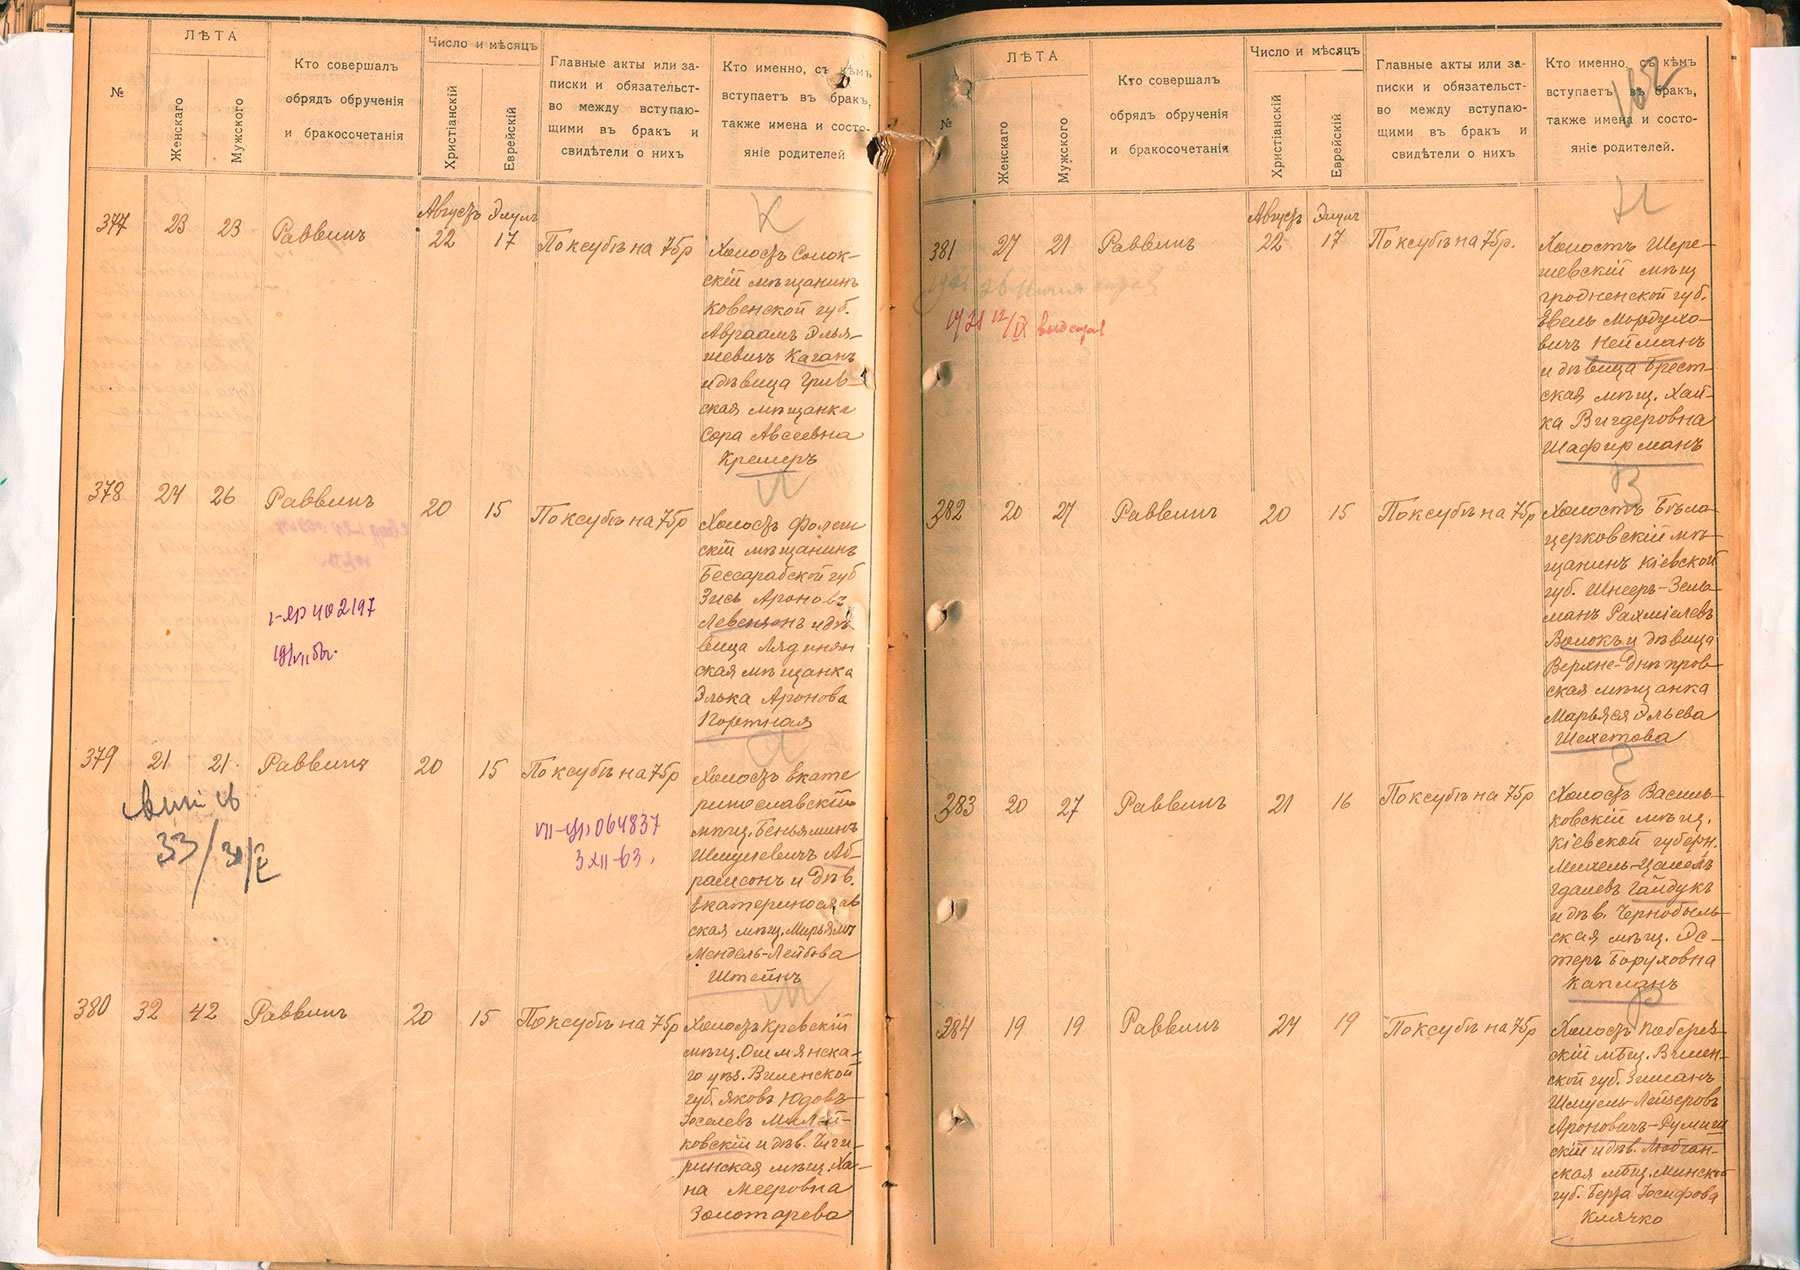 №
ЛѢТА
Женскаго
Мужского
Кто совершалъ
обрядъ обрученія
и бракосочетанія
Число и мѣсяцъ
Христіанскій
Еврейскій
Главные акты или за-
писки и обязательст-
во между вступаю-
щими въ бракъ и
свидѣтели о нихъ
Кто именно, съ кѣмъ
вступаетъ въ бракъ,
также имена и состо-
яніе родителей
К
377
23
23
Раввинъ
Августъ Элулъ
22
17
По ксубѣ на 75р
Холостъ Солок-
скій мѣщанинъ
Ковенской губ.
Авраамъ Элья-
шевичъ Каганъ
и дѣвица Грив-
ская мѣщанка
Сора Авсеевна
Кремеръ
378
24
26
Раввинъ
20
15
По ксубѣ на 75р
Холостъ Фолеш
скій мѣщанинъ
Бессарабской губ
Зись Ароновъ
Левензонъ и дѣ
вица Лядинян
ская мѣщанка
Элька Аронова
Портная
402197
379
21
21
Раввинъ
20
15
По ксубѣ на 75р
Холостъ Екате
ринославскій
мѣщ. Беньяминъ
Шмулевичъ Аб-
рамсонъ и дѣв.
Екатеринослав
ская мѣщ. Мирьямъ
Мендель-Лейбова
Штейнъ
33/
064837
3 XII-63.
380
32
42
Раввинъ
20
15
По ксубѣ на 75р
Холостъ Кревскій
мѣщ. Ошмянска-
го уѣз. Виленской
губ. Яковъ Юдовъ-
Іоселевъ Миляй-
ковскій и дѣв. Чиги-
ринская мѣщ. Ха-
на Мееровна
Золотарева
№
ЛѢТА
Женскаго
Мужского
Кто совершалъ
обрядъ обрученія
и бракосочетанія
Число и мѣсяцъ
Христіанскій
Еврейскій
Главные акты или за-
писки и обязательст-
во между вступаю-
щими въ бракъ и
свидѣтели о нихъ
Кто именно, съ кѣмъ
вступаетъ въ бракъ,
также имена и состо-
яніе родителей.
162
Н
381
27
21
Раввинъ
Августъ Элулъ
22
17
По ксубѣ на 75р.
Холостъ Шере-
шевскій мѣщ
Гродненской губ.
Евель Мордухо-
вичъ Нейманъ
и дѣвица Брест-
ская мѣщ. Хай-
ка Вигдеровна
Шафирманъ
1921 12/IX
В
382
20
27
Раввинъ
20
15
По ксубѣ на 75р
Холостъ Бѣло
церковскій мѣ-
щанинъ Кіевской
губ. Шнееръ-Зель
манъ Рахміелевъ
Волокъ и дѣвица
Верхне-Днѣпров-
ская мѣщанка
Марьяся Эльева
Шехетова
Г
383
20
27
Раввинъ
21
16
По ксубѣ на 75р
Холостъ Василь-
ковскій мѣщ.
Кіевской губерн.
Михель-Цалель
Гдалевъ Гайдукъ
и дѣв. Чернобыль-
ская мѣщ. Эс-
теръ Боруховна
Капланъ
Р
384
19
19
Раввинъ
24
19
По ксубѣ на 75р
Холостъ Поберез
скій мѣщ. Вилен-
ской губ. Зиманъ
Шмуель-Лейзеровъ
Ароновичъ-Румиш
скій и дѣв. Любчан-
ская мѣщ. Минской
губ. Берта Іосифова
Клячко